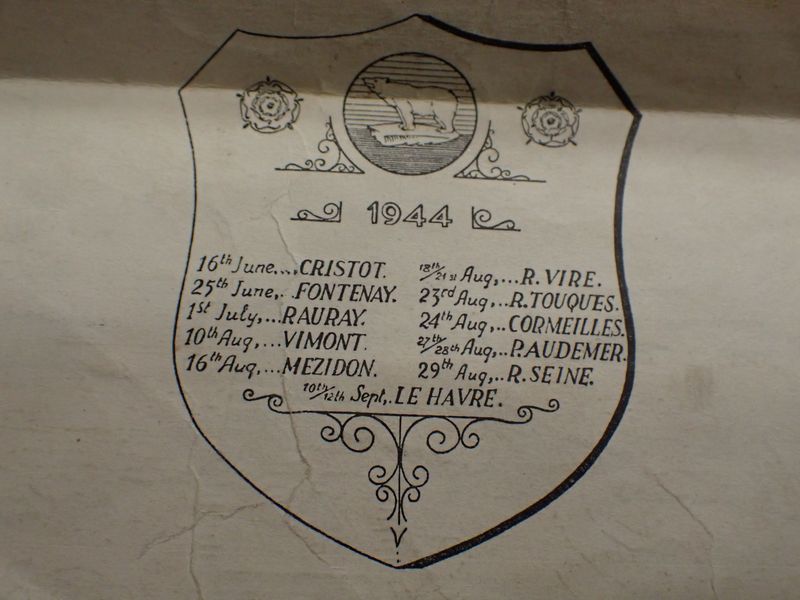 1944
16th June,...CRISTOT.
25th June,..FONTENAY.
1st July,...RAURAY.
10th Aug,...VIMONT.
16th Aug,...MEZIDON.
18th/21st Aug,...R.VIRE.
23rd Aug,..R.TOUQUES.
24th Aug,..CORMEILLES.
27th/28th Aug,..P.AUDEMER.
29th Aug,..R.SEINE.
10th/12th Sept,.LE HAVRE.